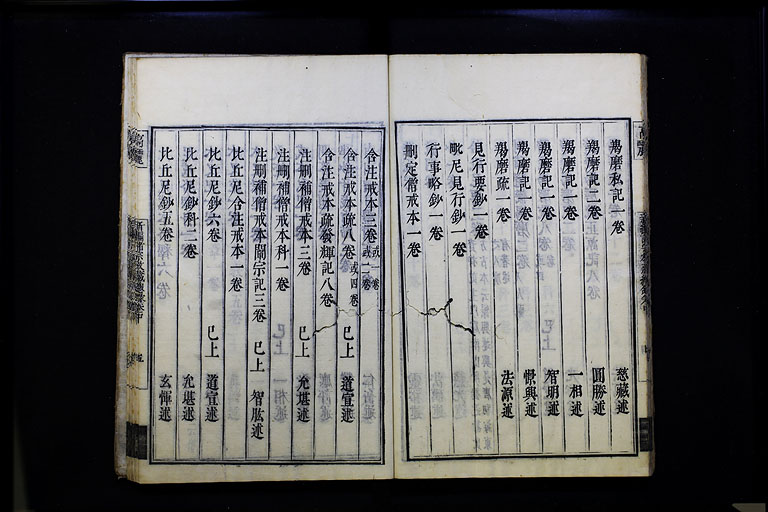 羯磨私記一卷 慈藏述
羯磨記二卷 圓勝述
羯磨記一卷 一相述
羯磨記一卷 智明述
羯磨記一卷 憬興述
羯磨疏一卷 法源述
見行要鈔一卷
毗尼見行鈔一卷
行事略鈔一卷
刪定僧戒本一卷
含注戒本三卷 或一卷 或二卷
含注戒本疏八卷 或四卷 已上 道宣述
含注戒本疏發輝記八卷
注刪補僧戒本三卷 已上 允堪述
注刪補僧戒本科一卷
注刪補僧戒本闡宗記三卷 已上 智肱述
比丘尼含注戒本一卷
比丘尼鈔六卷 已上 道宣述
比丘尼鈔科二卷 允堪述
比丘尼鈔五卷 玄惲述